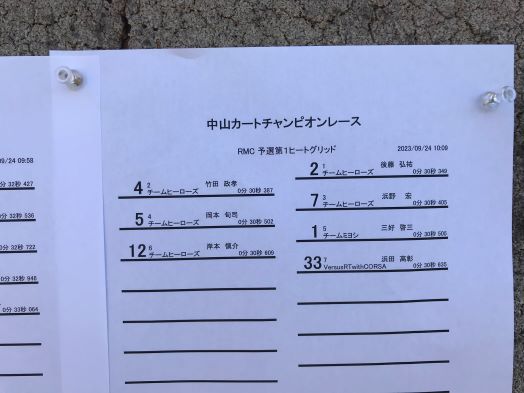 中山カートチャンピオンレース
RMC 予選第1ヒートグリッド
2023/09/24 10:09
2 1 後藤 弘祐
チームヒーローズ 0分 30秒 349
4 2 竹田 政孝
チームヒーローズ 0分 30秒 387
7 3 浜野 宏
チームヒーローズ 0分 30秒 405
5 4 岡本 旬司
チームヒーローズ 0分 30秒 502
1 5 三好 啓三
チームミヨシ 0分 30秒 505
12 6 岸本 慎介
チームヒーローズ 0分 30秒 609
33 7 浜田 高彰
VersusRTwithCORSA 0分 30秒 635
/24 09:58
分 32秒 427
分 32秒 536
分 32秒 722
分 32秒 946
0分 33秒 064